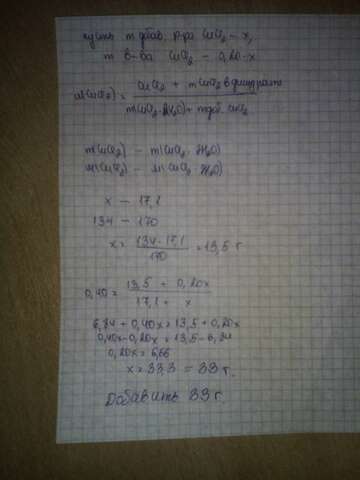 пусть m добав. р-ра CuCl₂ - x,
m в-ва CuCl₂ - 0,20·x
w(CuCl₂) = CuCl₂ + mCuCl₂ в дигидрате
m(CuCl₂·2H₂O) + m доб. CuCl₂
m(CuCl₂) - m(CuCl₂·2H₂O)
M(CuCl₂) - M(CuCl₂·2H₂O)
x - 17,1
134 - 170
x = 134·17,1 / 170 = 13,5 г
0,40 = 13,5 + 0,20x / 17,1 + x
6,84 + 0,40x = 13,5 + 0,20x
0,40x - 0,20x = 13,5 - 6,84
0,20x = 6,66
x = 33,3 = 33 г.
Добавить 33 г.